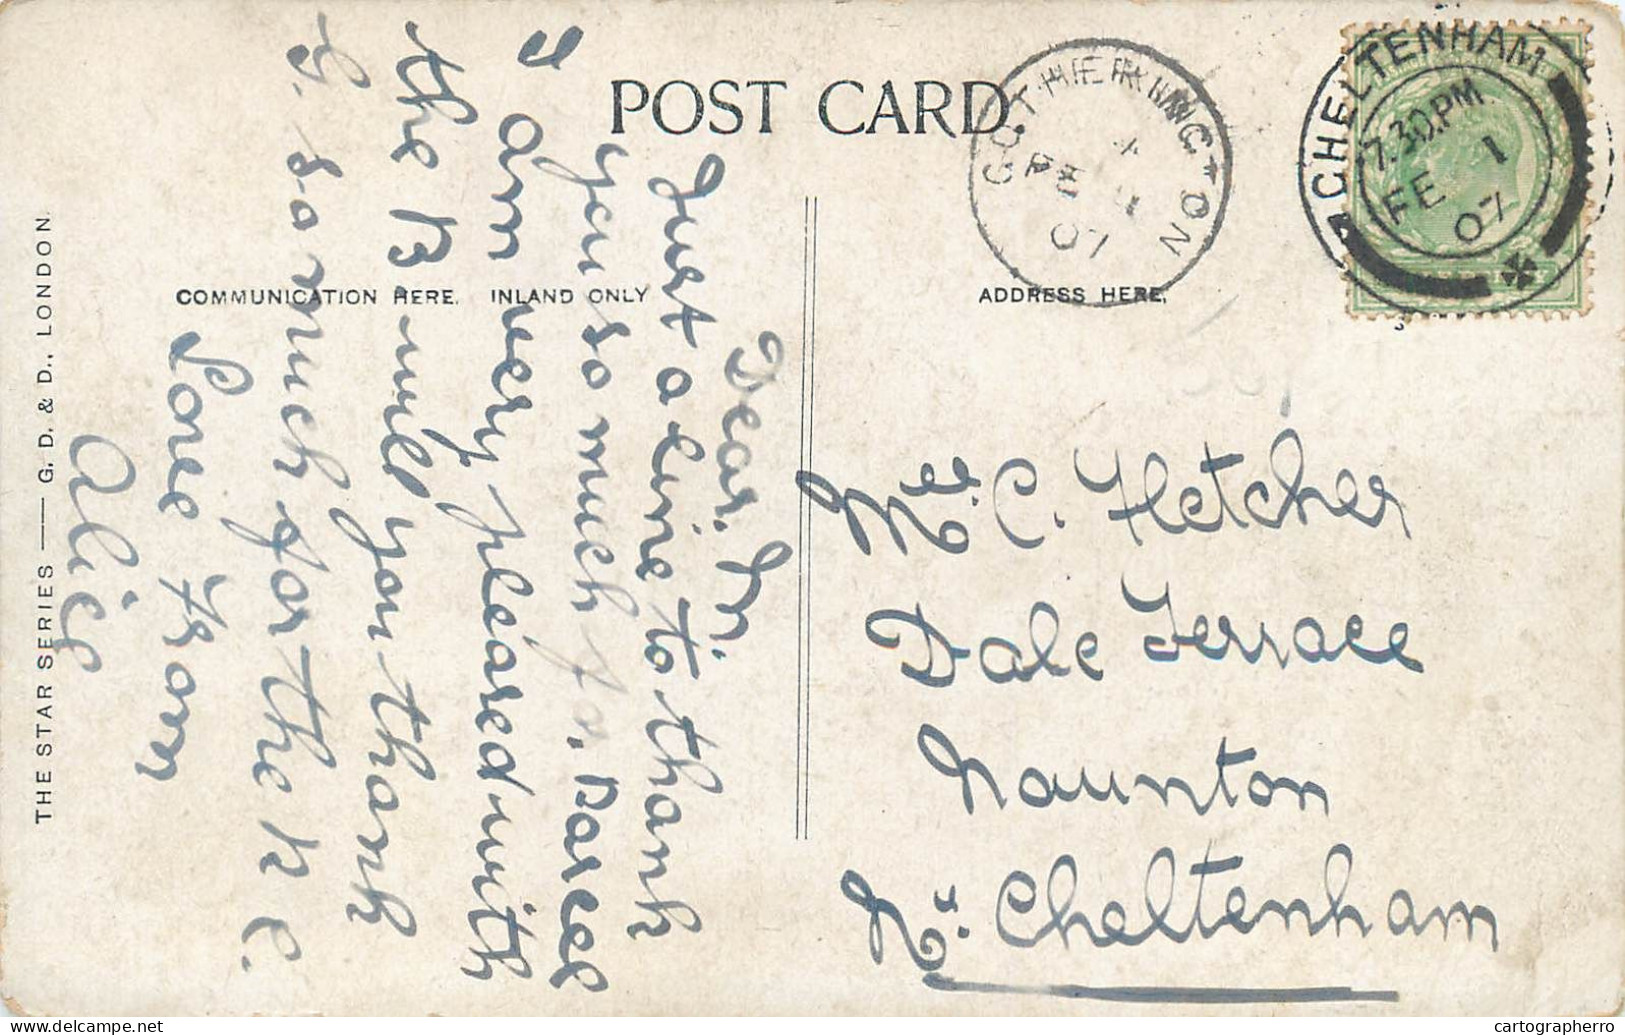 POST CARD
COMMUNICATION HERE. INLAND ONLY
ADDRESS HERE.
THE STAR SERIES — G. D. & D., LONDON.
CHELTENHAM
7.30.PM
FE 1
07
GOTHERINGTON
FE 1
07
Dear. M.
Just a line to thank
you so much for. Parcel
I am very pleased with
the B will you thank
G. so much for the K C.
Love from
Alice
C. Fletcher
Dale Terrace
Naunton
Nr. Cheltenham
delcampe.net
cartographerro